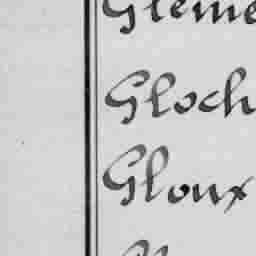 Gleme
Gloch
Gloux